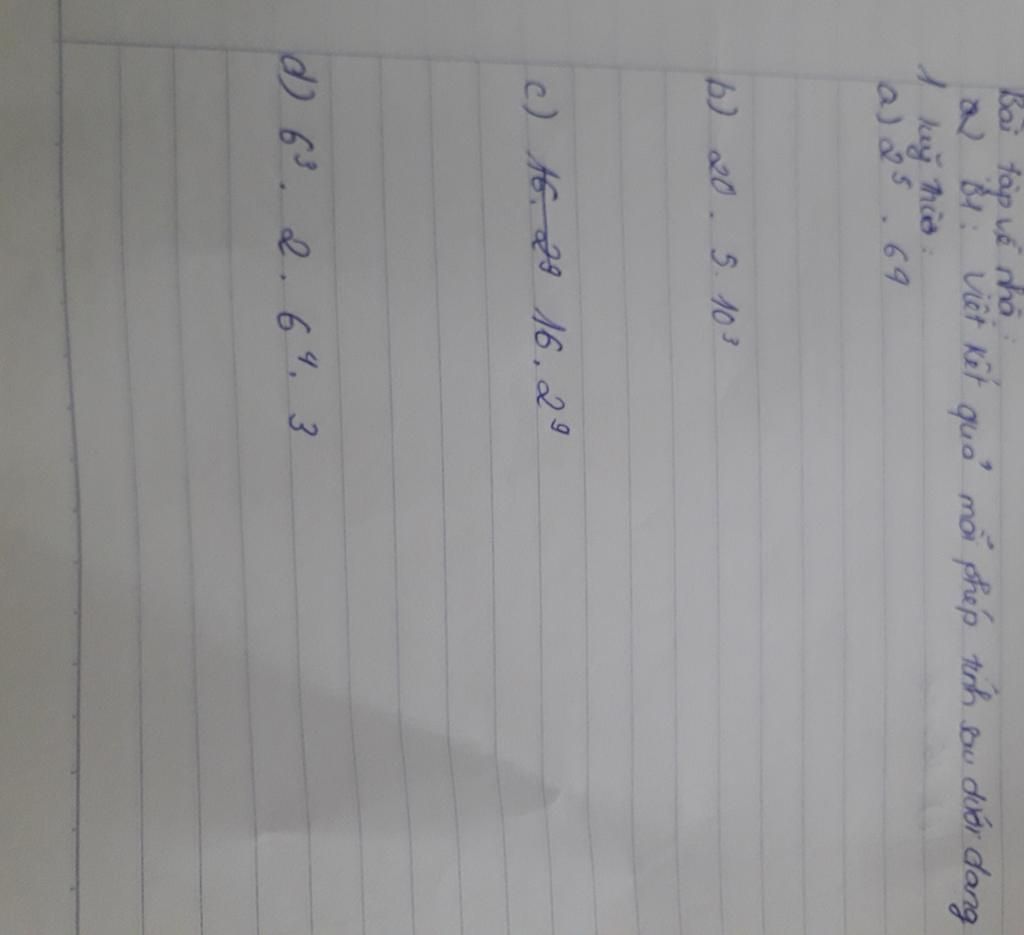 Bài tập về nhà:
a) B1: Viết kết quả mỗi phép tính sau dưới dạng
1 luỹ thừa:
a) 2⁵ . 69
b) 20 . 5 . 10³
c) 16 . 2⁹ 16 . 2⁹
d) 6³ . 2 . 6⁴ . 3